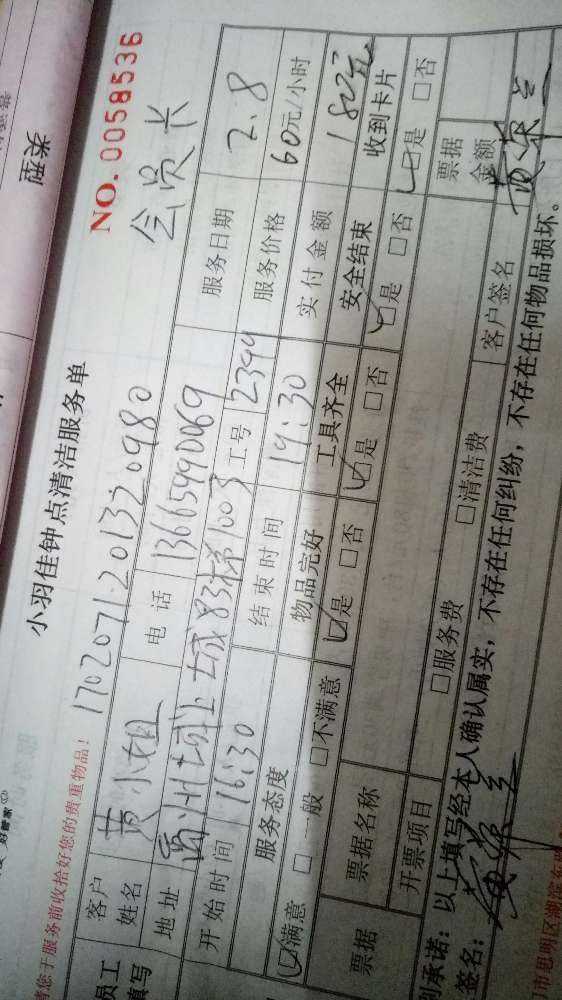 小羽佳钟点清洁服务单
NO.0058536
请您于服务前收拾好您的贵重物品!
1702071-201320980
会员卡
员工
填写
客户姓名 黄小姐 电话 13665990069 服务日期 2.8
地址 禹州城上城83梯1003 工号 2394 服务价格 60元/小时
开始时间 16:30 结束时间 19:30 实付金额 180元
服务态度 物品完好 工具齐全 安全结束 收到卡片
☑满意 □一般 □不满意 ☑是 □否 ☑是 □否 ☑是 □否 ☑是 □否
票据 票据名称 票据金额
开票项目 □服务费 □清洁费 客户签名
承诺:以上填写经本人确认属实,不存在任何纠纷,不存在任何物品损坏。
签名:
市思明区湖滨东路